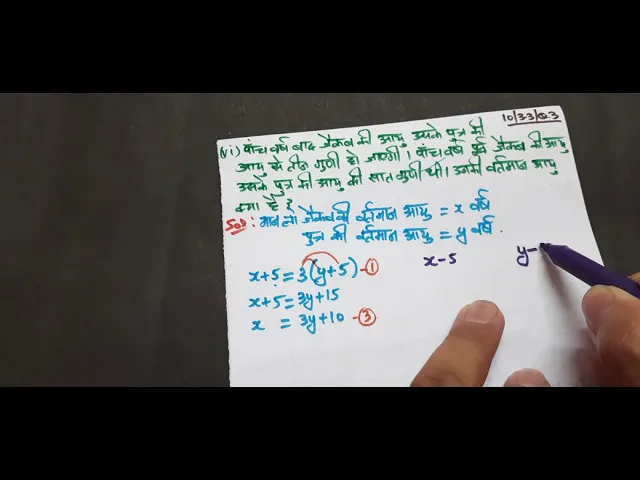 10/3.3/Q.3
(vi) पांच वर्ष बाद जैकब की आयु उसके पुत्र की
आयु से तीन गुणी हो जाएगी। पांच वर्ष पूर्व जैकब की आयु
उसके पुत्र की आयु की सात गुणी थी। उनकी वर्तमान आयु
क्या है ?
Sol: मान लो जैकब की वर्तमान आयु = x वर्ष
पुत्र की वर्तमान आयु = y वर्ष.
x+5 = 3(y+5) -① x-5 y-
x+5 = 3y+15
x = 3y+10 -③